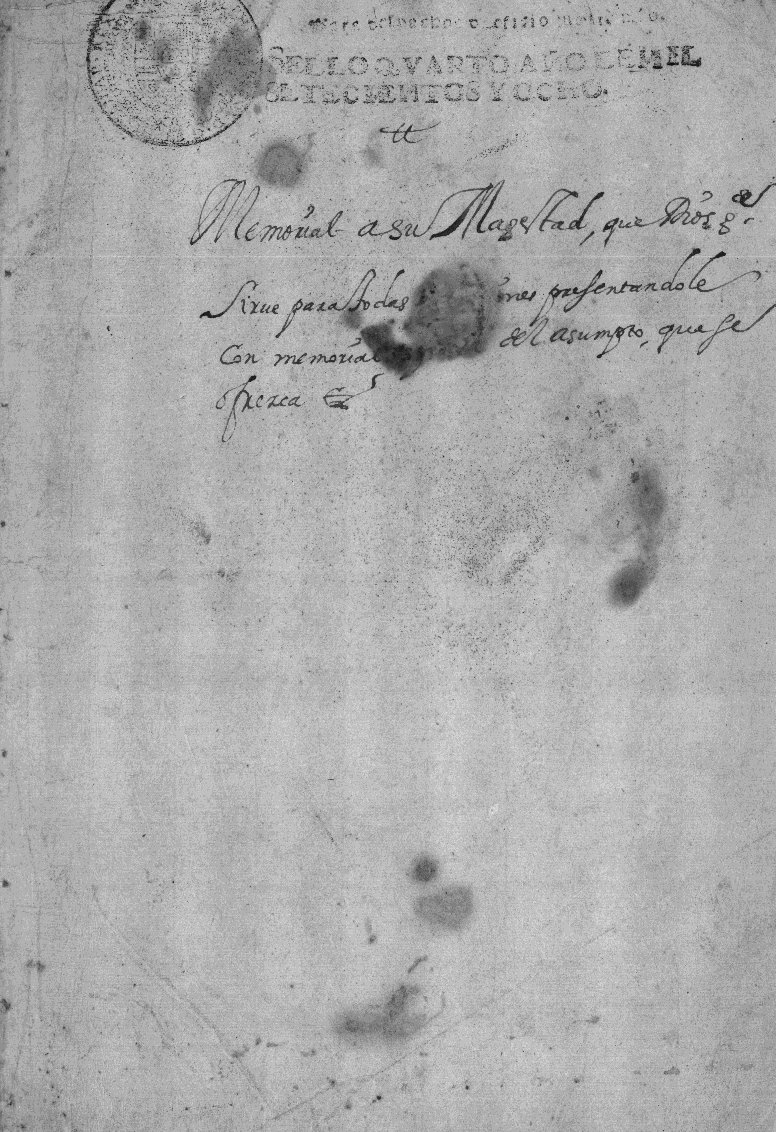 SELLO QVARTO AÑO DE MIL
SETECIENTOS Y OCHO.
tt
Memorial a su Magestad, que Dios g.de
Sirue para todas presentandole
Con memorial del asumpto, que se
ofrezca